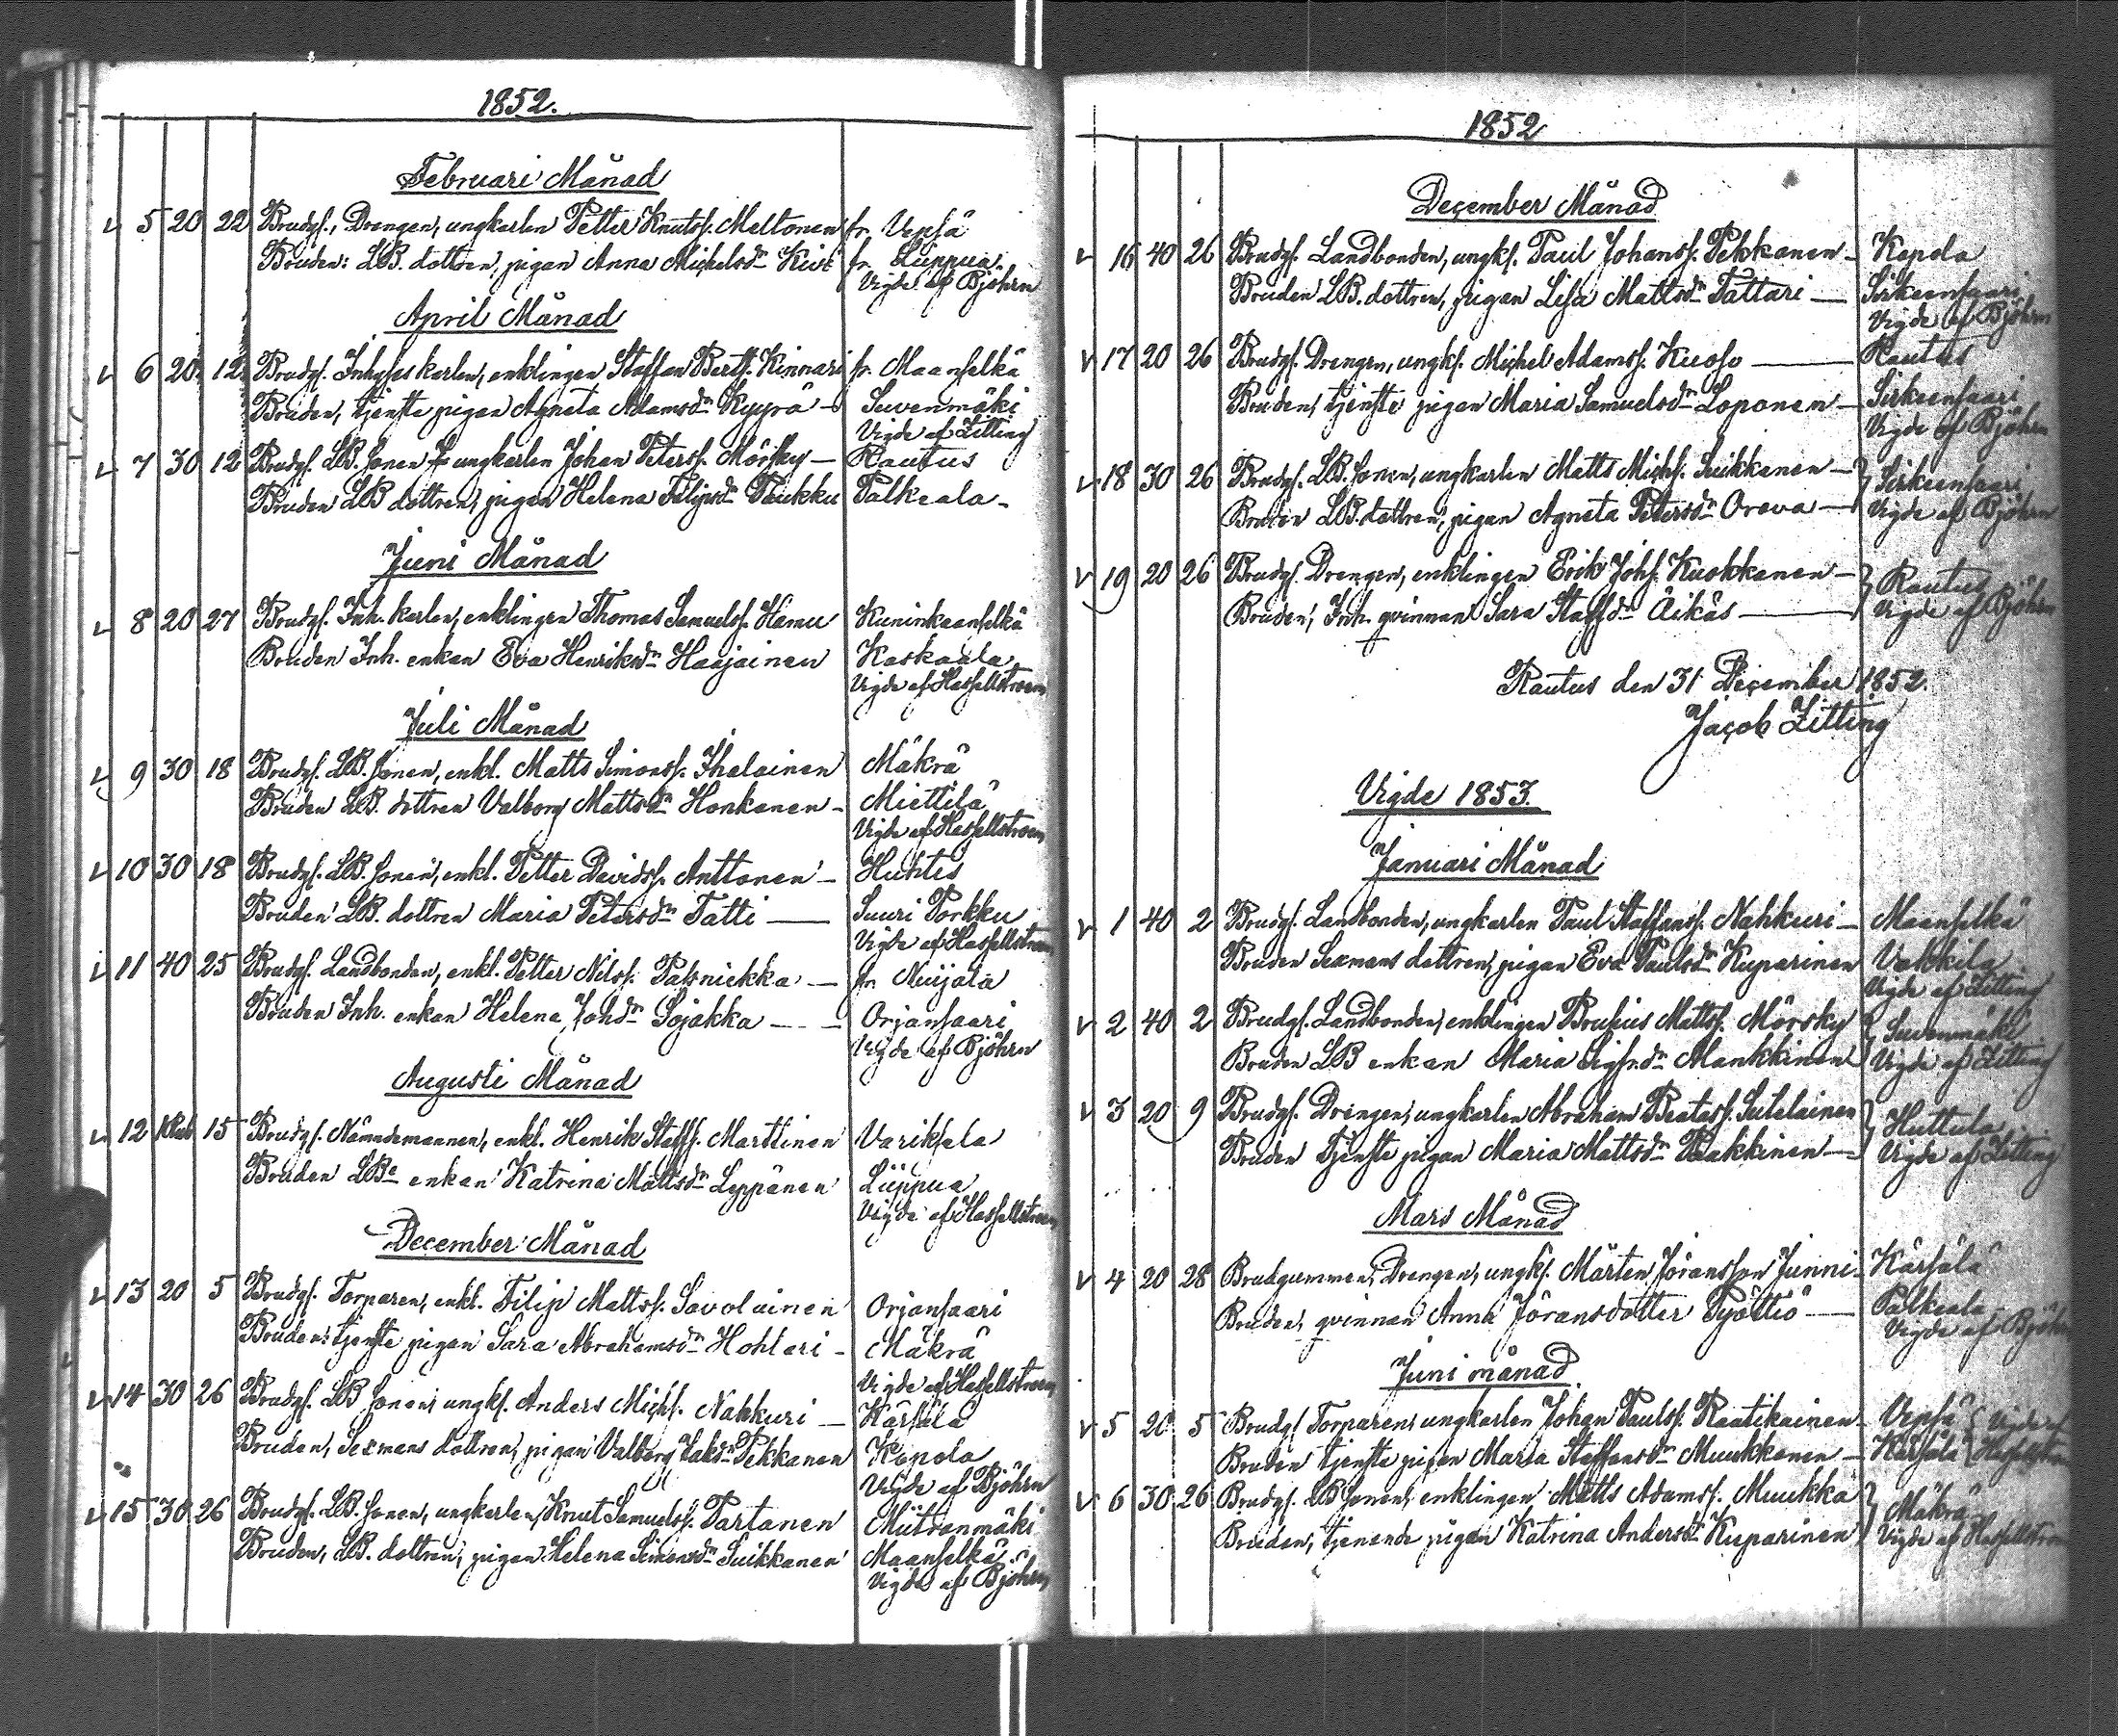 1852.
Februari Månad
5 20 22 Brudg., Drengen, ungkarlen Petter Knutss. Meltonen fr. Vepsä
Bruden: LB. dottren, pigan Anna Michelsdn Kivi fr. Liippua.
Vigde af Björn
April Månad
6 20 12 Brudg. Inhyses karlen, enklingen Staffan Bertss. Kinnari fr. Maanselkä
Bruden, tjenste pigan Agneta Adamsdn Kyyrö – Suvenmäki
Vigde af Zitting
7 30 12 Brudg. LB. sonen ungkarlen Johan Peterss. Mörsky – Rautus
Bruden LB dottren, pigan Helena Filipsdn Paukku Palkeala –
Juni Månad
8 20 27 Brudg. Inh. karlen, enklingen Thomas Samuelss. Hamu Kuninkaanselkä
Bruden Inh. enkan Eva Henriksdn Haajainen Kaskaala
Vigde af Hasfellstroem
Juli Månad
9 30 18 Brudg. LB. sonen, enkl. Matts Simonss. Ihalainen Mäkrä
Bruden LB. dottren Valborg Mattsdn Honkanen – Miettilä
Vigde af Hasfellstroem
10 30 18 Brudg. LB. sonen, enkl. Petter Davidss. Anttonen – Huhtis
Bruden LB. dottren Maria Petersdn Tatti — Suuri Porkku
Vigde af Hasfellstroem
11 40 25 Brudg. Landbonden, enkl. Petter Nilss. Patsniekka — fr. Nuijala
Bruden Inh. enkan Helena Johdn Sojakka – – – Orjansaari
Vigde af Björn
Augusti Månad
12 15 Brudg. Nämndemannen, enkl. Henrik Staffs. Marttinen Variksela
Bruden LBs enkan Katrina Mattsdn Leppänen Liippua
Vigde af Hasfellstroem
December Månad
13 20 5 Brudg. Torparen, enkl. Filip Mattss. Savolainen Orjansaari
Bruden: tjenste pigan Sara Abrahamsdn Hohtari – Mäkrä
Vigde af Hasfellstroem
14 30 26 Brudg. LB sonen, ungk. Anders Michs. Nahkuri — Kärsälä
Bruden, Sexmans dottren, pigan Valborg Pekkanen Kopola
Vigde af Björn
15 30 26 Brudg. LB. sonen, ungkarlen Knut Samuelss. Partanen Miitronmäki
Bruden, LB. dottren, pigan Helena Simonsdn Suikkanen Maanselkä
Vigde af Björn
1852
December Månad
16 40 26 Brudg. Landbonden, ungk. Paul Johanss. Pekkanen – Kopola
Bruden LB. dottren, pigan Lisa Mattsdn Tattari — Sirkeensaari
Vigde af Björn
17 20 26 Brudg. Drengen, ungk. Michel Adamss. Kuoso — Rautus
Bruden, tjenste pigan Maria Samuelsdn Loponen – Sirkeensaari
Vigde af Björn
18 30 26 Brudg. LB. sonen, ungkarlen Matts Michs. Suikkanen – Sirkeensaari
Bruden LB. dottren, pigan Agneta Petersdn Orava – Vigde af Björn
19 20 26 Brudg. Drengen, enklingen Erik Johs. Kuokkanen – Rautus
Bruden, Inh. qvinnan Sara Staffdn Äikäs — Vigde af Björn
Rautus den 31 December 1852.
Jacob Zitting
Vigde 1853.
Januari Månad
1 40 2 Brudg. Landbonden, ungkarlen Paul Staffanss. Nahkuri – Maanselkä
Bruden Sexmans dottren, pigan Eva Paulsdn Kuparinen Vakkila
Vigde af Zitting
2 40 2 Brudg. Landbonden, enklingen Brusius Mattss. Mörsky Suvenmäki
Bruden LB enkan Maria Sigfr.dn Mankkinen Vigde af Zitting
3 20 9 Brudg. Drengen, ungkarlen Abraham Beatass. Sutelainen Huttula
Bruden Tjenste pigan Maria Mattsdn Pakkinen — Vigde af Zitting
Mars Månad
4 20 28 Brudgummen, Drengen, ungk. Mårten Jöransson Junni – Kärsälä
Bruden, qvinnan Anna Jöransdotter Pyöttiö — Palkeala
Vigde af Björn
Juni månad
5 20 5 Brudg. Torparen, ungkarlen Johan Paulss. Raatikainen – Vepsä Vigde af
Bruden tjenste pigan Maria Staffansdn Muukkonen – Kärsälä Hasfellstroem
6 30 26 Brudg. LB sonen, enklingen Matts Adamss. Muukka Mäkrä
Bruden, tjenande pigan Katrina Andersdn Kuparinen Vigde af Hasfellstroem